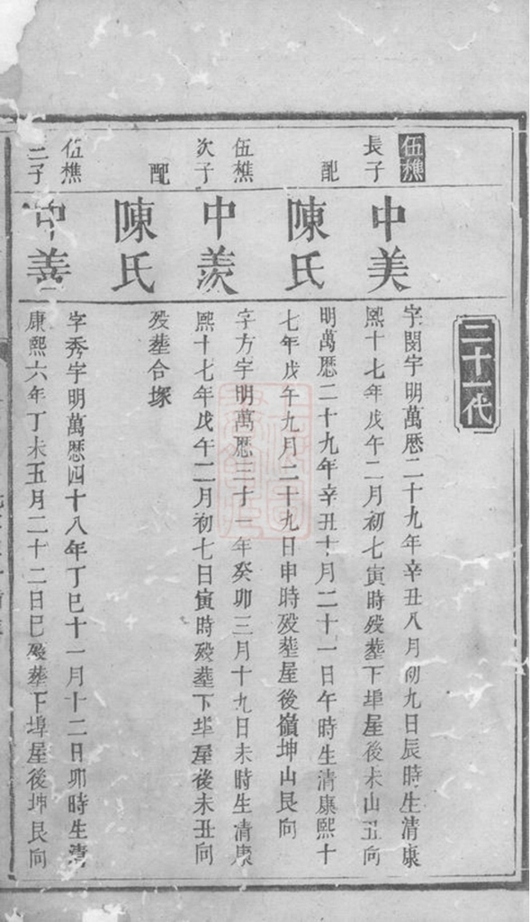 二十一代
伍樵
長子
中美
字閔宇明萬厯二十九年辛丑八月初九日辰時生清康
熙十七年戊午二月初七寅時殁塟下埠屋後未山丑向
配
陳氏
明萬厯二十九年辛丑十月二十一日午時生清康熙十
七年戊午九月二十九日申時殁塟屋後嶺坤山艮向
伍樵
次子
中羨
字方宇明萬厯三十一年癸卯三月十九日未時生清康
熙十七年戊午二月初七日寅時殁塟下埠屋後未丑向
配
陳氏
殁塟合塚
伍樵
三子
中善
字秀宇明萬厯四十八年丁巳十一月十二日卯時生清
康熙六年丁未五月二十二日巳殁塟下埠屋後坤艮向